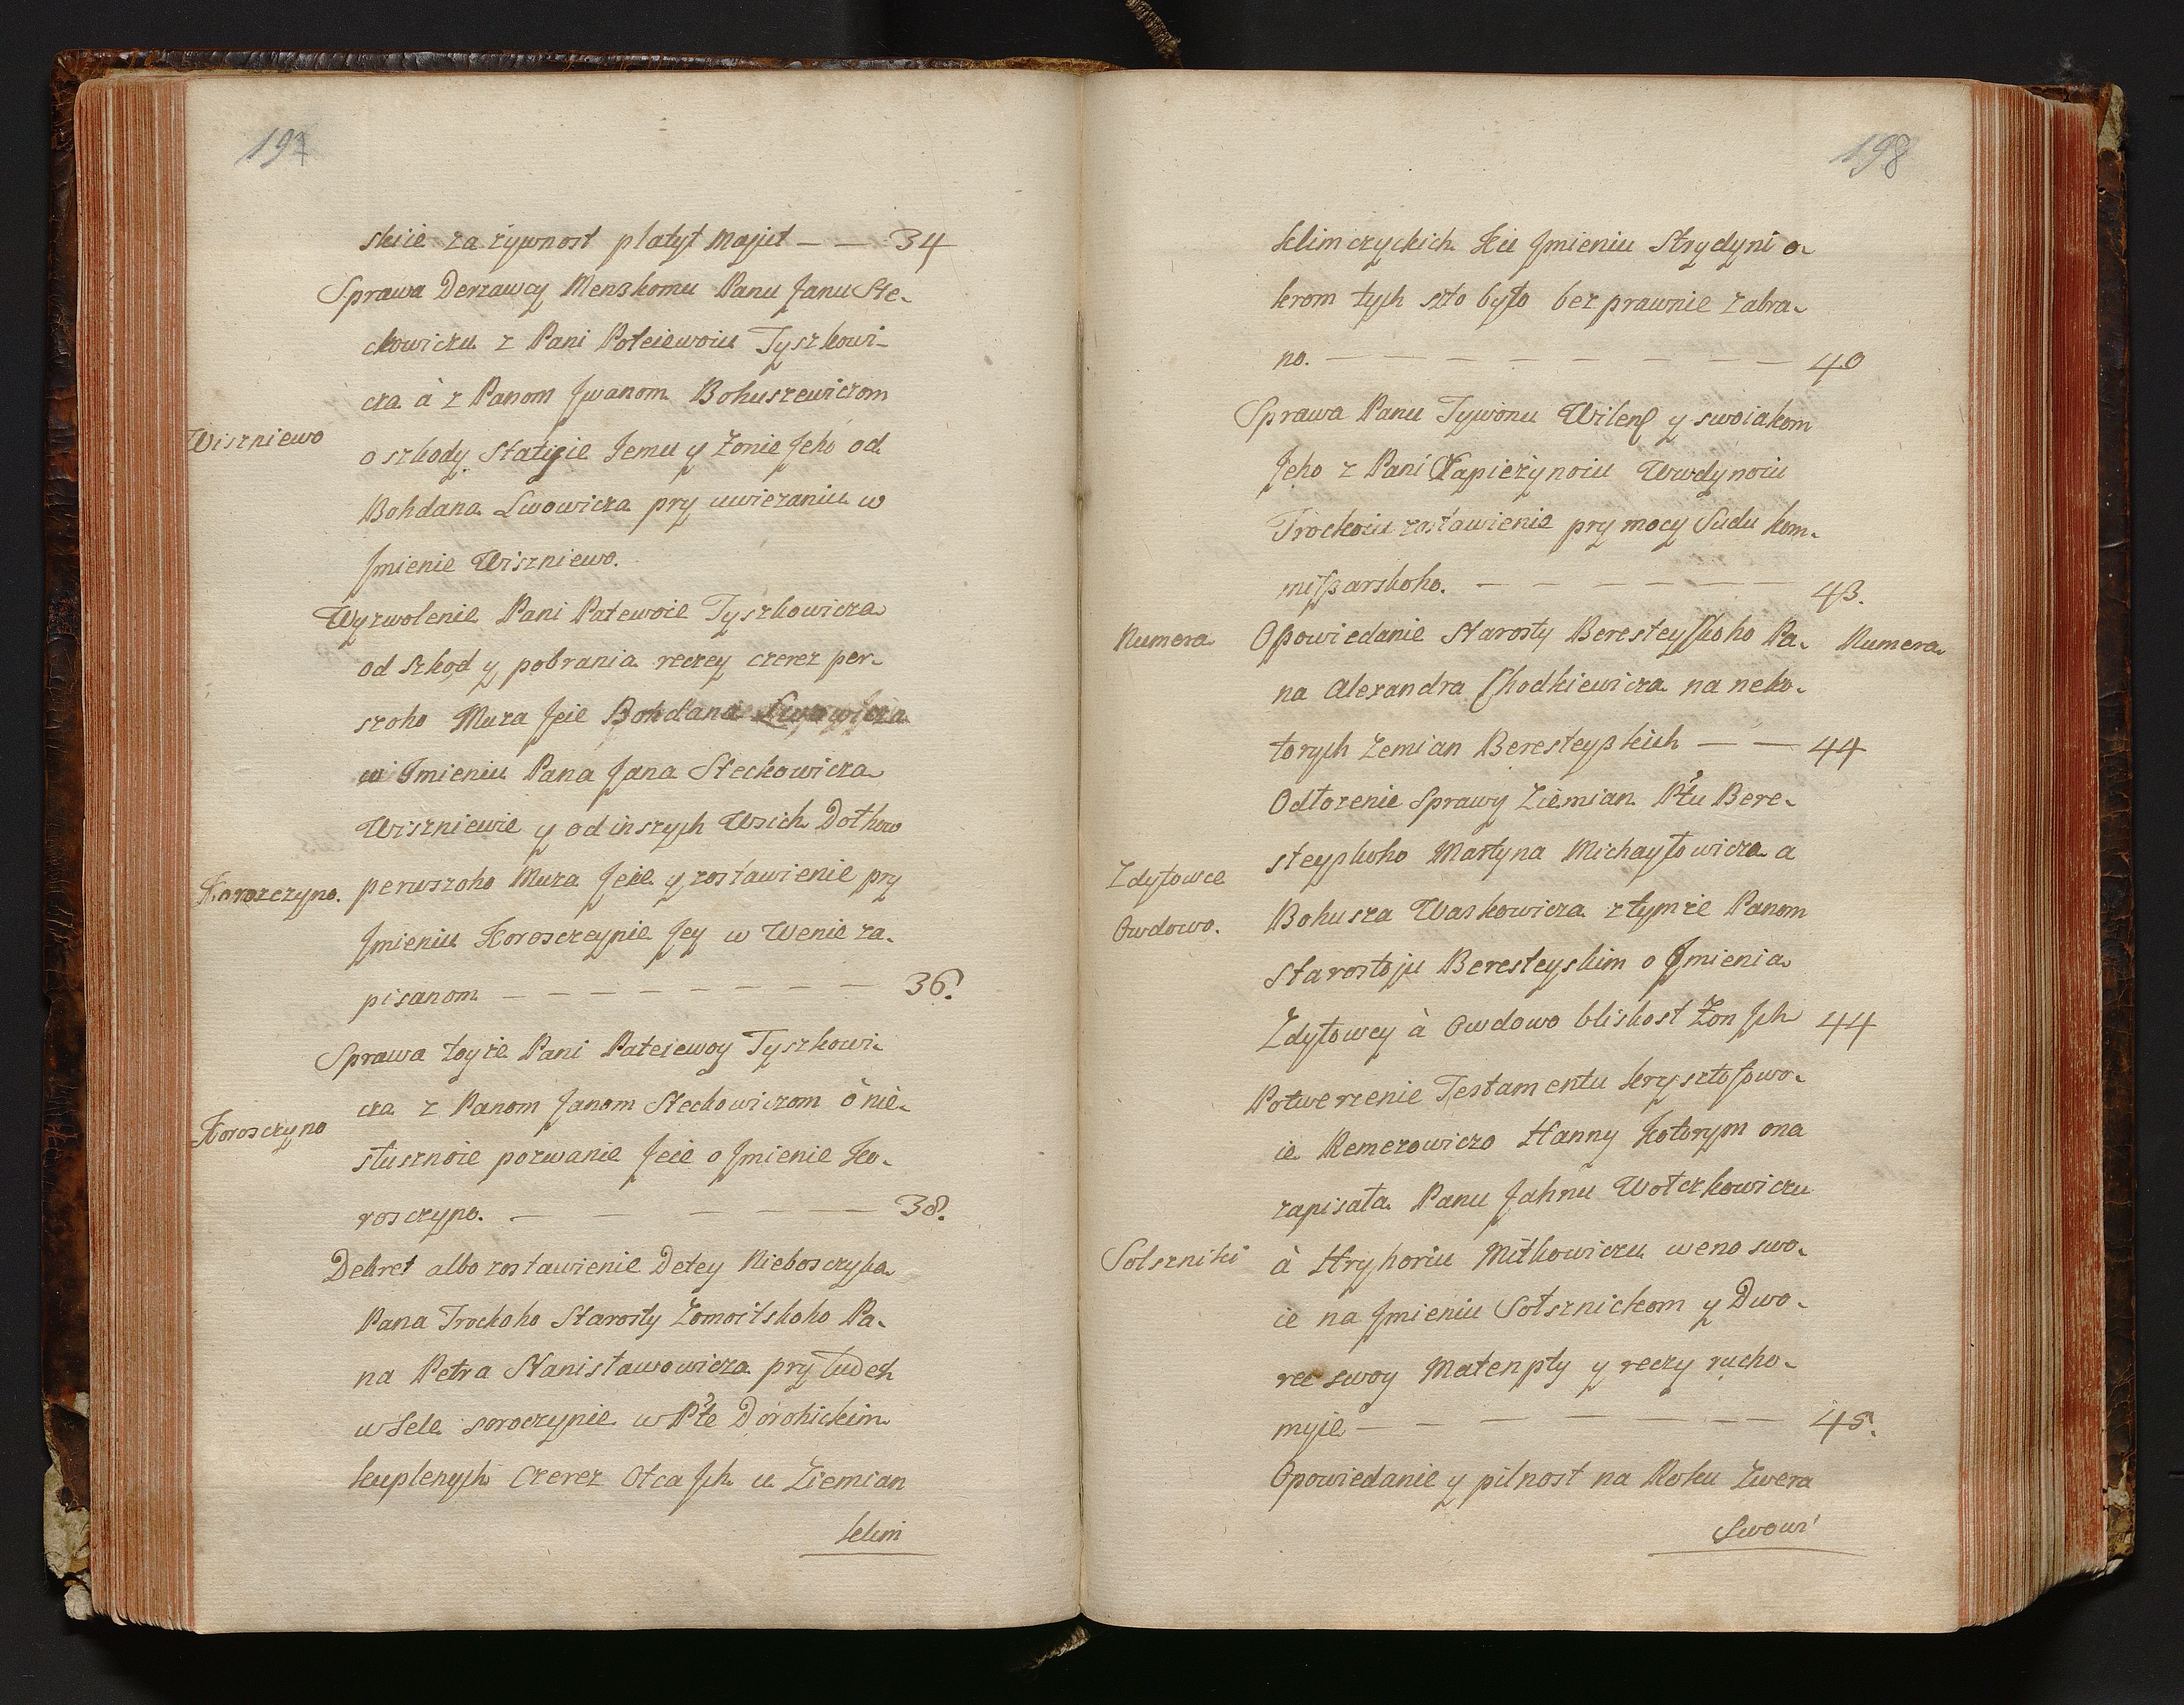 197
skiie za żywnost płatyt Majut — — 34
Sprawa Derzawcy Menskomu Panu Janu Ste-
ckowiczu z Pani Poteiewoiu Tyszkowi-
cza à z Panom Jwanom Bohuszewiczom
Wiszniewo
o szkody Statyie Jemu y Zonie Jeho od
Bohdana Lwowicza pry uwiezaniu w
Jmienie Wiszniewo.
Wyzwolenie Pani Patewoie Tyszkowicza
od Szkod y pobrania reczey czerez per-
szoho Muza Jeie Bohdana Lwowicza
w Jmieniu Pana Jana Steckowicza
Wiszniewie y od inszych Wsich Dołhow
Horoszczyno.
perwszoho Muza Jeie y zostawienie pry
Jmieniu Horosczeynie Jey w Wenie za-
pisanom — — — — — — — — 36.
Sprawa toyże Pani Pateiewoy Tyszkowi-
cza z Panom Janom Steckowiczom ò nie-
Horosczyno
słusznoie pozwanie Jeie o Jmienie Ho-
rosczyno. — — — — — 38.
Dekret albo zostawienie Detey Nieboszczyka
Pana Trockoho Starosty Zomoitskoho Pa-
na Petra Stanisławowicza pry Ludech
w Sele soroczynie w Ptě Dorohickim
kuplenych Czerez Otca Jch u Ziemian
klim
198
klimczyckich Ku Jmieniu Strydyni o-
krom tych szto było bezprawnie zabra-
no. — — — — — — — — 40
Sprawa Panu Tywonu Wilen y swoiakom
Jeho z Pani Sapieżynoiu Wwdynoiu
Trockoiu zostawienie pry mocy Sudu kom-
mißarskoho. — — — — — — 43.
Numera
Opowiedanie Starosty Beresteyskoho Pa-
Numera
na Alexandra Chodkiewicza na neko-
torych Zemian Beresteyskich — — 44
Odłozenie Sprawy Ziemian Ptu Bere-
steyskoho Martyna Michayłowicza a
Zdytowce
Owdowo.
Bohusza Waskowicza z tymże Panom
Starostoju Beresteyskim o Jmienia
Zdytowcy à Owdowo bliskost Żon Jch 44
Potwerzenie Testamentu krysztofowo-
ie Remezowiczo Hanny kotorym ona
zapisała Panu Jahnu Wołczkowiczu
Solszniki
à Hryhoriu Mitkowiczu weno swo-
ie na Jmieniu Sołsznickom y Dwo-
rec swoy Matenpty y reczy rucho-
myie — — — — — — — 45.
Opowiedanie y pilnost na Roku Zwera
Lwowi